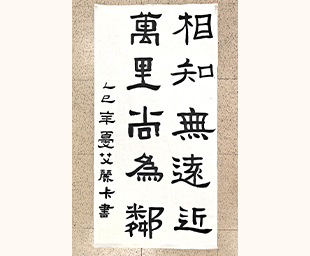 相知無遠近
萬里尚為鄰
乙巳年夏艾麗卡書